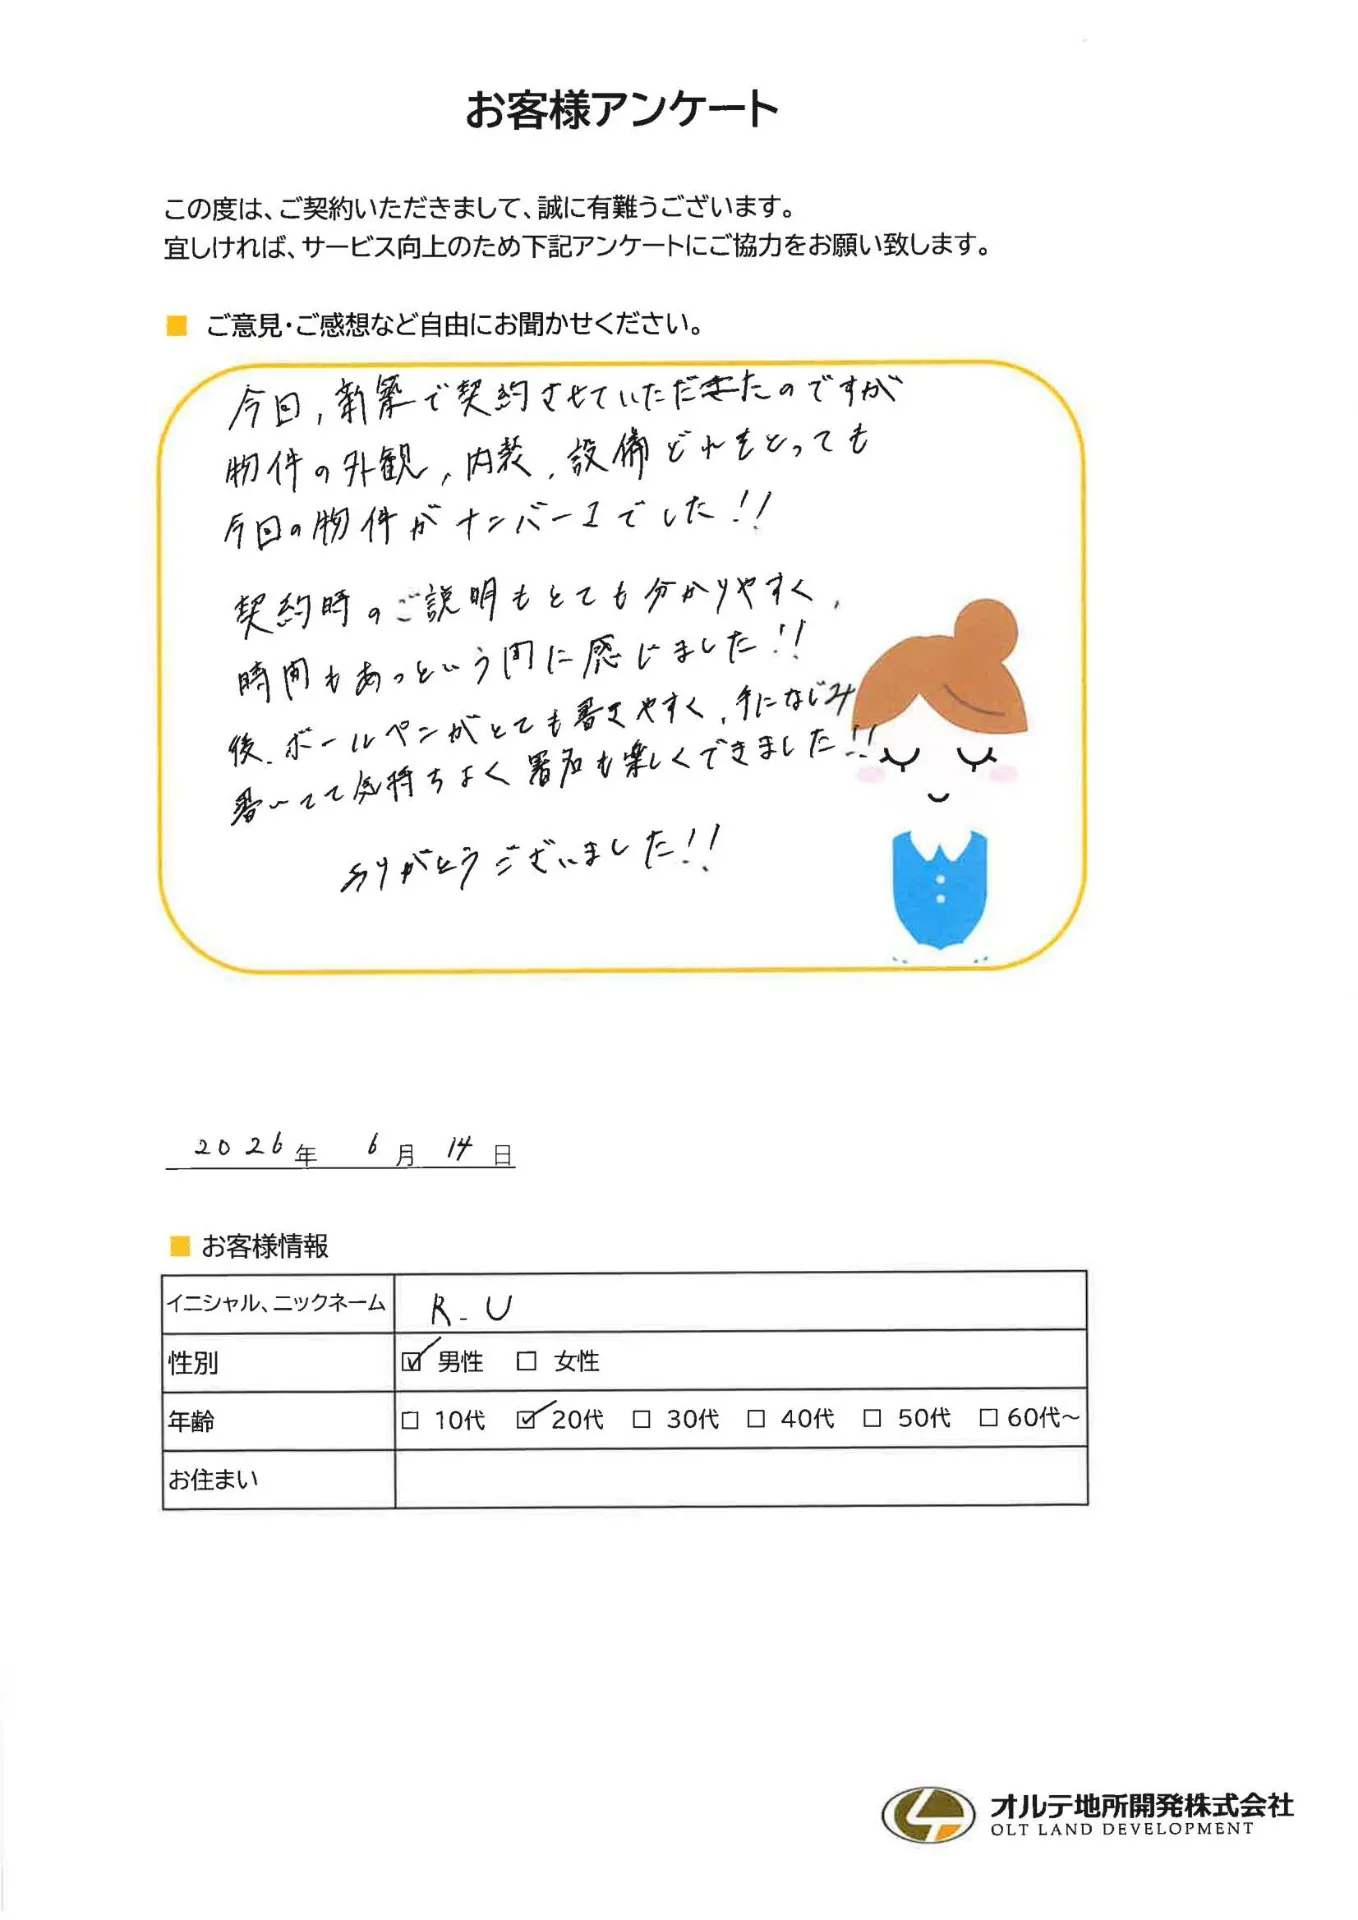 お客様アンケート
この度は、ご契約いただきまして、誠に有難うございます。
宜しければ、サービス向上のため下記アンケートにご協力をお願い致します。
■ ご意見・ご感想など自由にお聞かせください。
今回、新築で契約させていただきたのですが
物件の外観、内装、設備どれをとっても
今回の物件がナンバー1でした!!
契約時のご説明もとても分かりやすく、
時間もあっという間に感じました!!
後、ボールペンがとても書きやすく、手になじみ
書いてて気持ちよく署名も楽しくできました!!
ありがとうございました!!
2026年 6月 14日
■ お客様情報
イニシャル、ニックネーム R.U
性別 ☑ 男性 □ 女性
年齢 □ 10代 ☑ 20代 □ 30代 □ 40代 □ 50代 □ 60代~
お住まい
オルテ地所開発株式会社
OLT LAND DEVELOPMENT